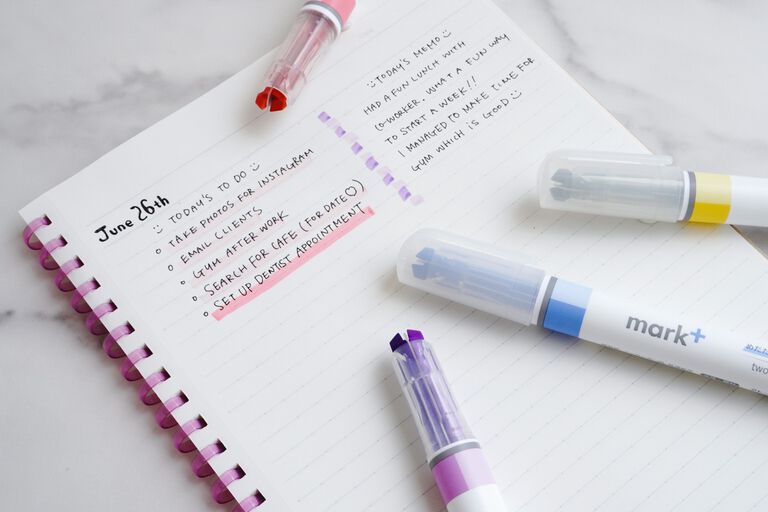 June 26th
TODAY'S TO DO
TAKE PHOTOS FOR INSTAGRAM
EMAIL CLIENTS
GYM AFTER WORK
SEARCH FOR CAFE (FOR DATE♡)
SET UP DENTIST APPOINTMENT
TODAY'S MEMO
HAD A FUN LUNCH WITH
CO-WORKER. WHAT A FUN WAY
TO START A WEEK!!
I MANAGED TO MAKE TIME FOR
GYM WHICH IS GOOD
mark+
two